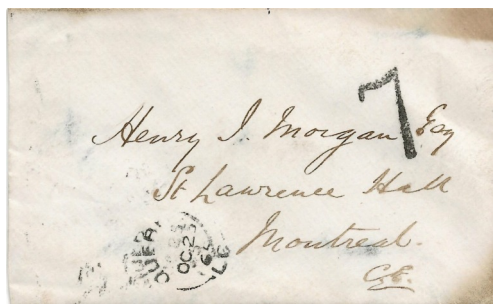 Henry J. Morgan Esq
7
St Lawrence Hall
Montreal.
C.E.
OC 23